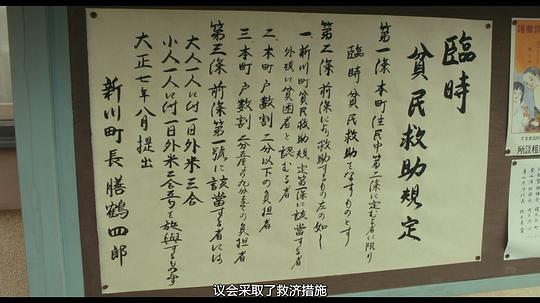 臨時
貧民救助規定
第一條本町住民中第二條に定むる者に限り
臨時貧民救助をなすものとす
第二條前條により救助するもの左の如し
一、新川町貧民救助規定第二條に該當する者
外現に貧困者と認むる者
二、本町戸數割二分以下の負担者
三本町戸數割
の負担者
第三條前條第一號に該當する者には
大人一人に付一日外米三合
小人一人に付一日外米二合
を施與するものとす
大正七年八月提出
新川町長膳鶴四郎
议会采取了救济措施